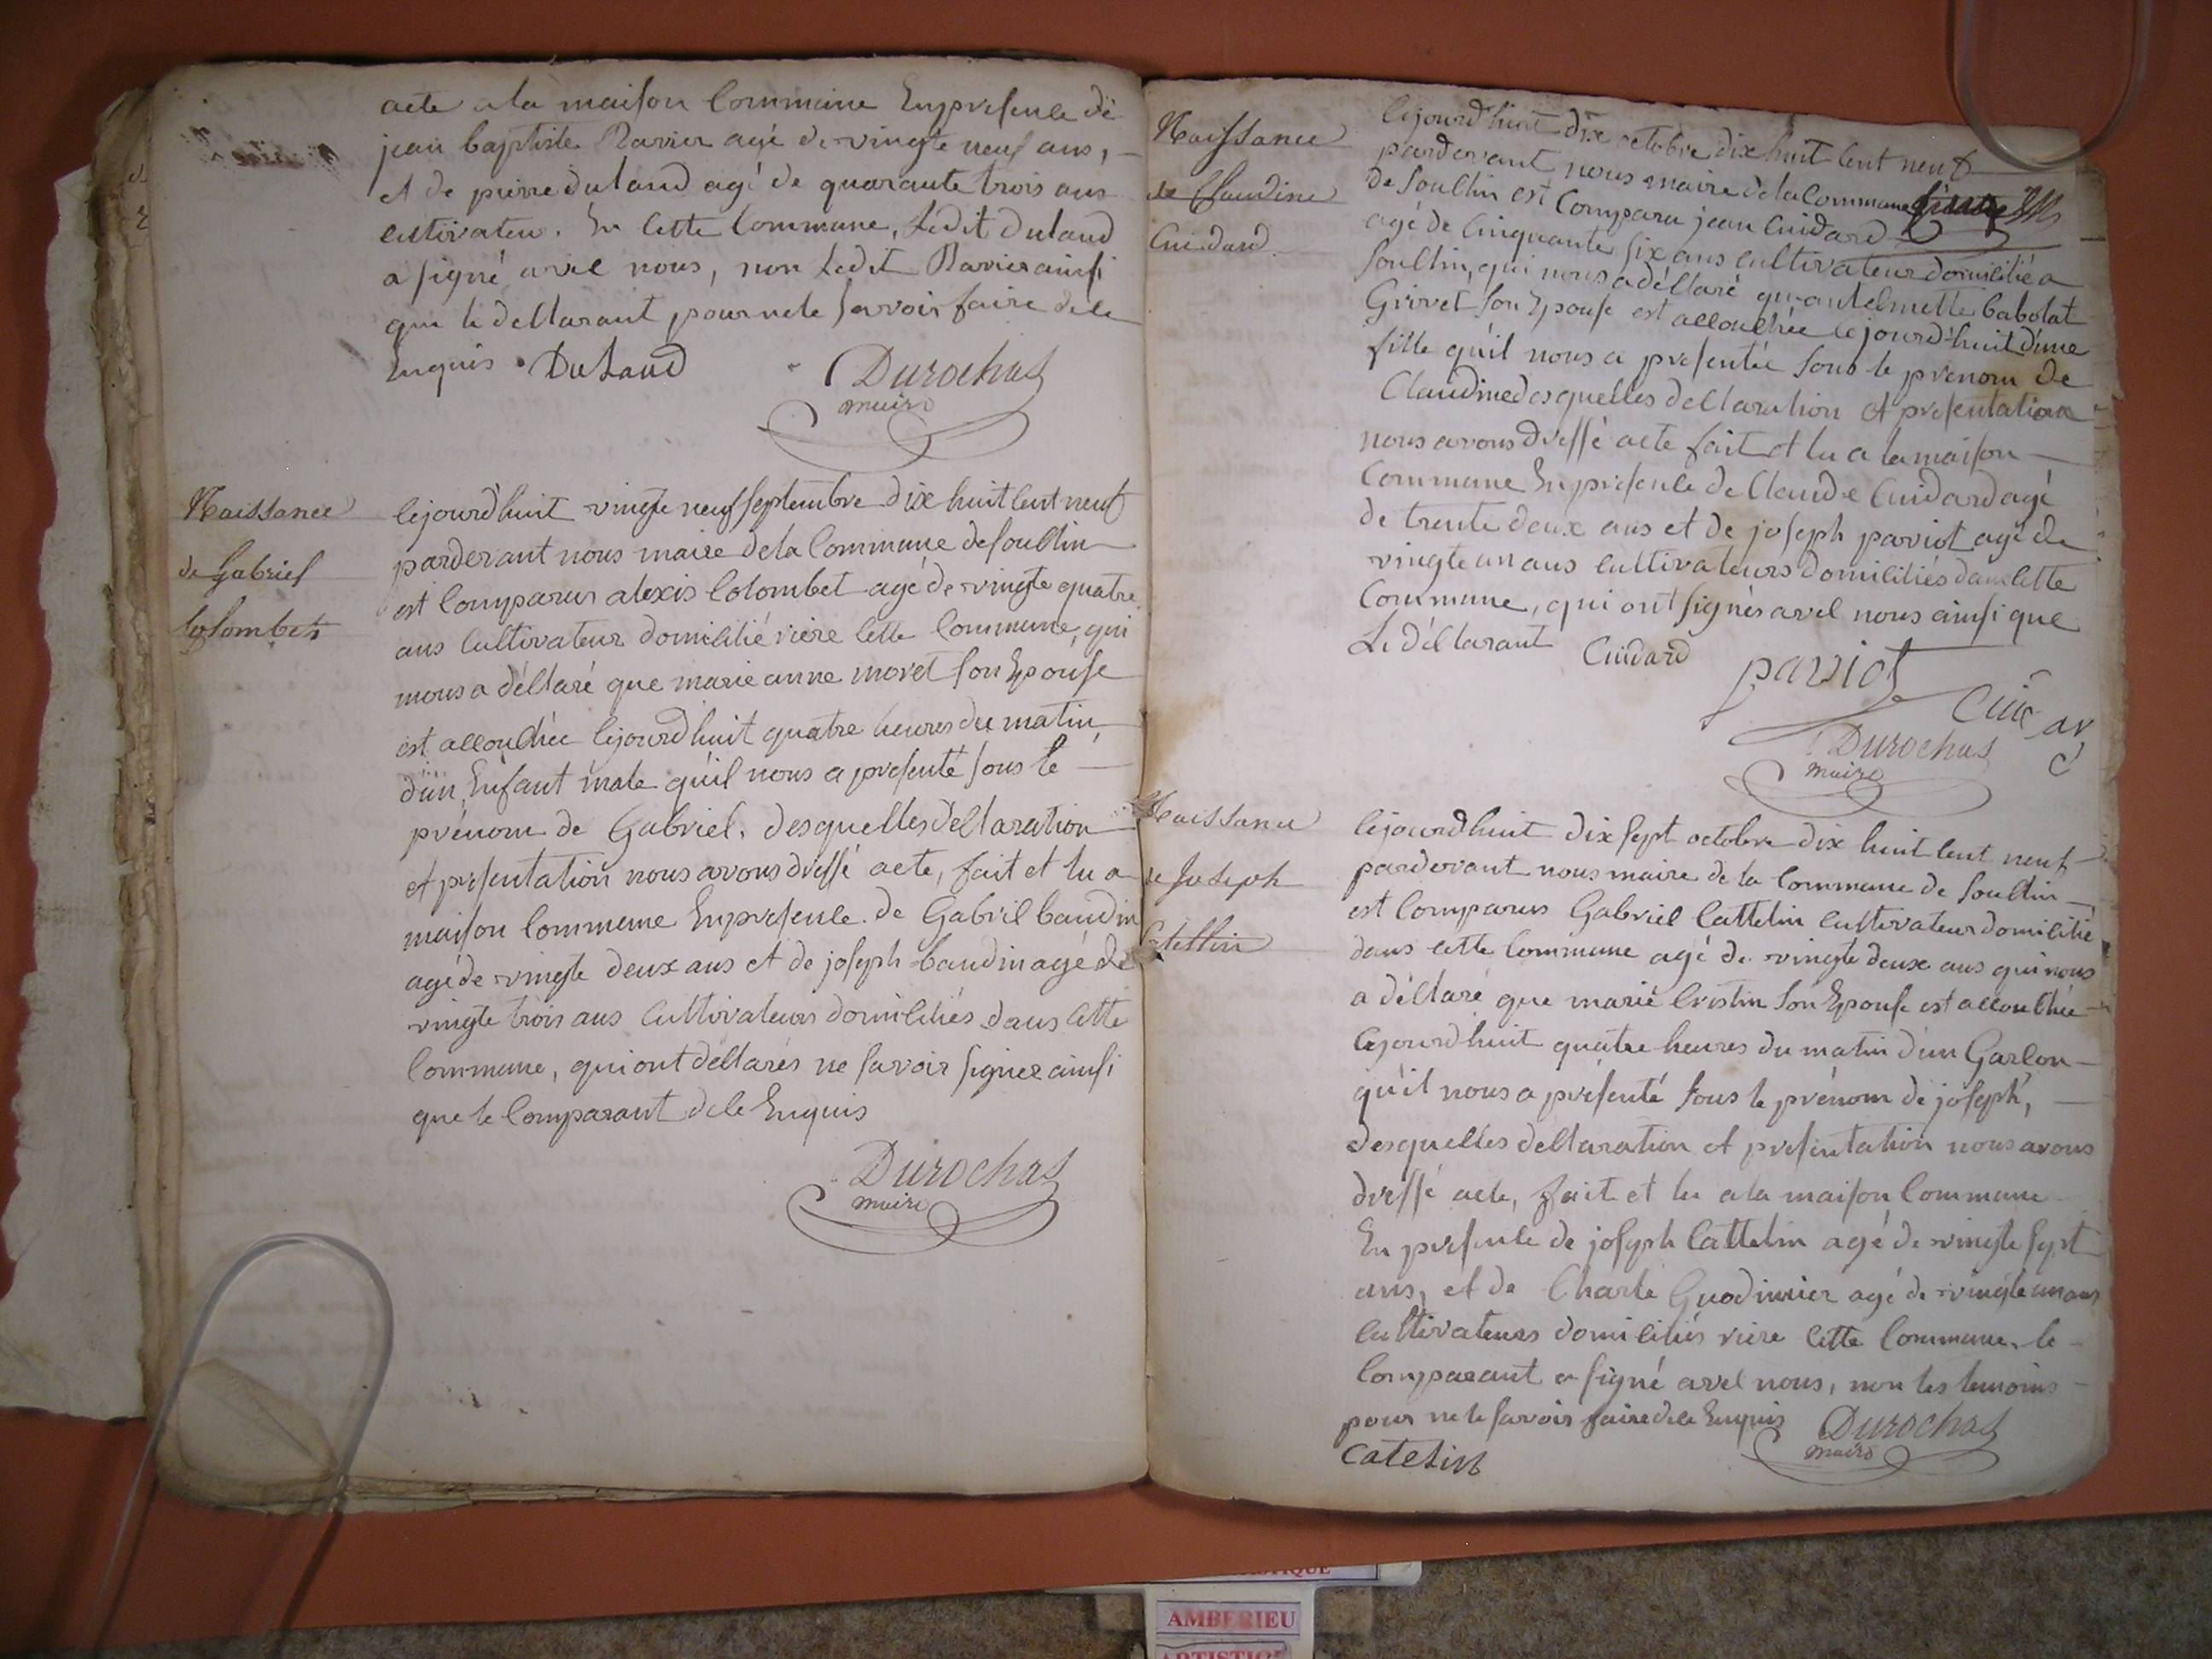 acte a la maison Commune En presence de
jean baptiste Ravier agé de vingte neuf ans,
et de pierre duland agé de quarante trois ans
cultivateu. En Cette Commune, Ledit duland
a signé avec nous, non Ledit Ravier ainsi
que le declarant, pour ne le savoir faire de ce
Enquis. DuLand Durochas
maire
Naissance
de Gabriel
Colombet
Cejourd'huit vingte neuf septembre dix huit cent neuf
pardevant nous maire de la Commune de souclin
est Comparus alexis Colombet agé de vingte quatre
ans Cultivateur domicilié riere cette Commune, qui
nous a déclaré que marie anne moret son Epouse
est accouchée Cejourd'huit quatre heures du matin
d'un Enfant male qu'il nous a presenté sous le
prénom de Gabriel. desquelles déclaration
et presentation nous avons dressé acte, fait et lu a
maison Commune En presence de Gabriel baudin
agé de vingte deux ans et de joseph baudin agé de
vingte trois ans Cultivateurs domiciliés dans Cette
Commune, qui ont déclarés ne savoir signer ainsi
que le Comparant de ce Enquis
Durochas
maire
Naissance
de Claudine
Cuidard
Cejourd'huit dix octobre dix huit cent neuf
pardevant nous maire de la Commune
de souclin est Comparu jean Cuidard
agé de Cinquante six ans cultivateur domicilié a
souclin, qui nous a déclaré qu'antelmette babolat
Grivet son Epouse est accouchée Cejourd'huit d'une
fille qu'il nous a presentée sous le prenom de
Claudine desquelles declaration et presentation
nous avons dressé acte fait et lu a la maison
Commune En presence de Claude Cuidard agé
de trente deux ans et de joseph paviot agé de
vingte un ans cultivateurs domiciliés dans cette
Commune, qui ont signés avec nous ainsi que
Le déclarant Cuidard paviot
Durochas
maire
Naissance
de Joseph
Catellin
Cejourd'huit dix sept octobre dix huit cent neuf
pardevant nous maire de la Commune de souclin
est Comparus Gabriel Cattelin cultivateur domicilié
dans cette Commune agé de vingte deux ans qui nous
a déclaré que marie Cristin son Epouse est accouchée
Cejourd'huit quatre heures du matin d'un Garçon
qu'il nous a présenté sous le prénom de joseph,
desquelles declaration et presentation nous avons
dressé acte, fait et lu a la maison Commune
En presence de joseph Cattelin agé de vingte sept
ans, et de Charle Guodimier agé de vingte un ans
cultivateurs domiciliés riere Cette Commune. le
Comparant a signé avec nous, non les temoins
pour ne le savoir faire de ce Enquis Durochas
maire
Catelin
AMBERIEU
ARTISTIQUE